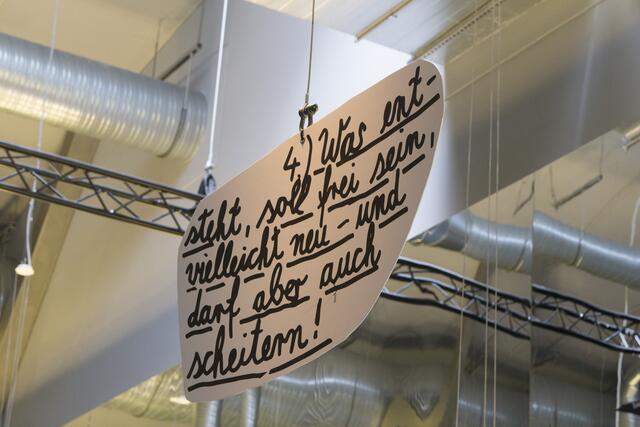 4) Was ent-
steht, soll frei sein,
vielleicht neu - und
darf aber auch
scheitern!